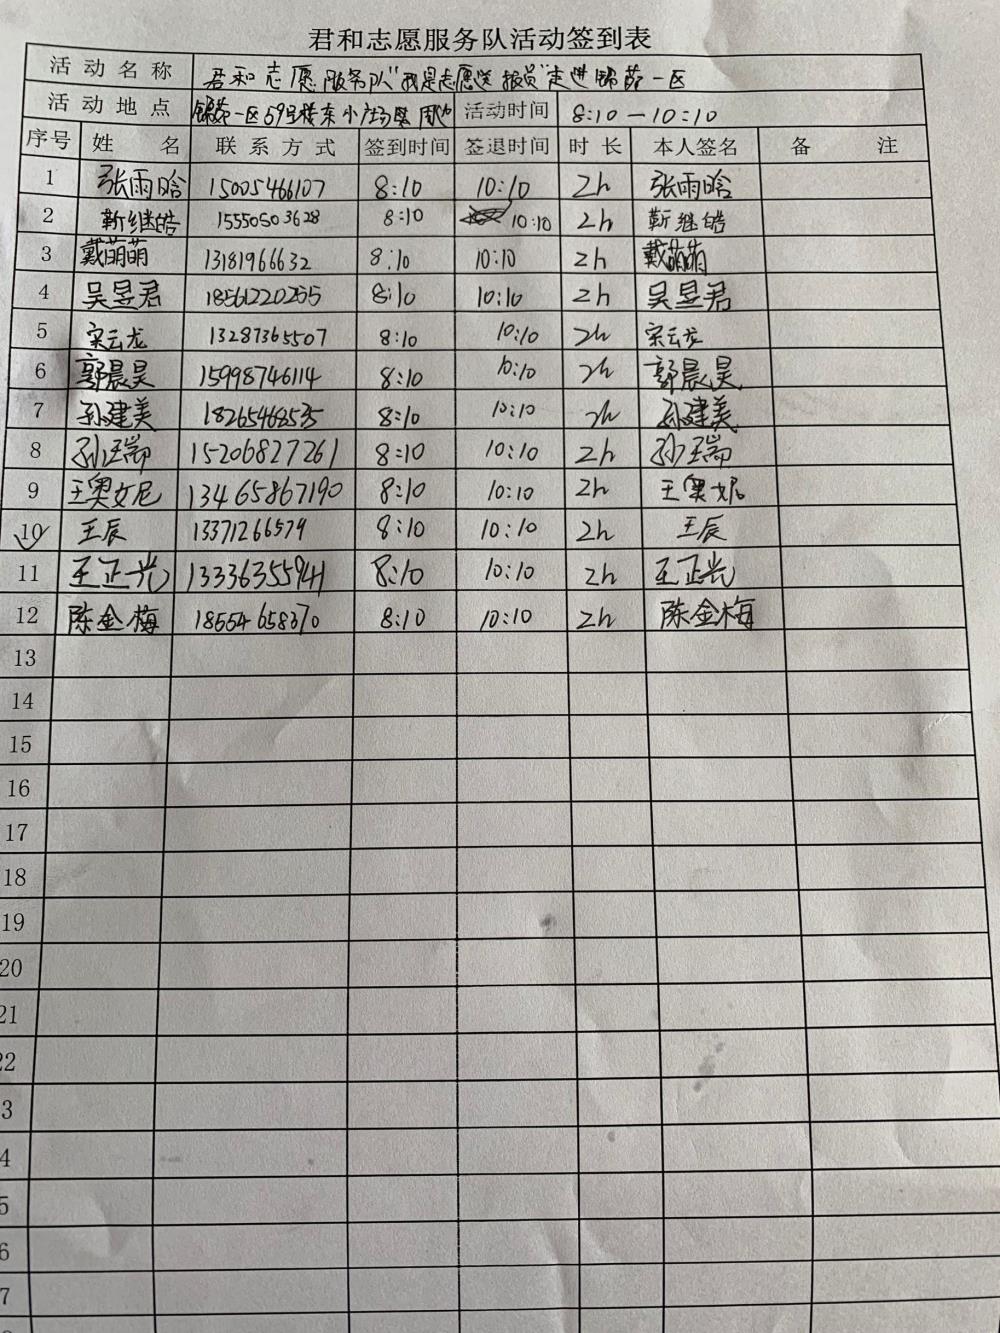 君和志愿服务队活动签到表
活动名称 君和志愿服务队"我是志愿送报员"走进锦苑一区
活动地点 锦苑一区69号楼东小广场 活动时间 8:10—10:10
序号 姓名 联系方式 签到时间 签退时间 时长 本人签名 备注
1 张雨晗 15005466107 8:10 10:10 2h 张雨晗
2 靳继皓 15550503628 8:10 10:10 2h 靳继皓
3 戴萌萌 13181966632 8:10 10:10 2h 戴萌萌
4 吴昱君 18561220255 8:10 10:10 2h 吴昱君
5 宋云龙 13287365507 8:10 10:10 2h 宋云龙
6 郭晨昊 15998746114 8:10 10:10 2h 郭晨昊
7 孙建美 18265468535 8:10 10:10 2h 孙建美
8 孙瑞 15206827261 8:10 10:10 2h 孙瑞
9 王奥妮 13465867190 8:10 10:10 2h 王奥妮
10 王辰 13371266579 8:10 10:10 2h 王辰
11 王正光 13336355941 8:10 10:10 2h 王正光
12 陈金梅 18554658370 8:10 10:10 2h 陈金梅
13
14
15
16
17
18
19
20
21
22
3
4
5
6
7